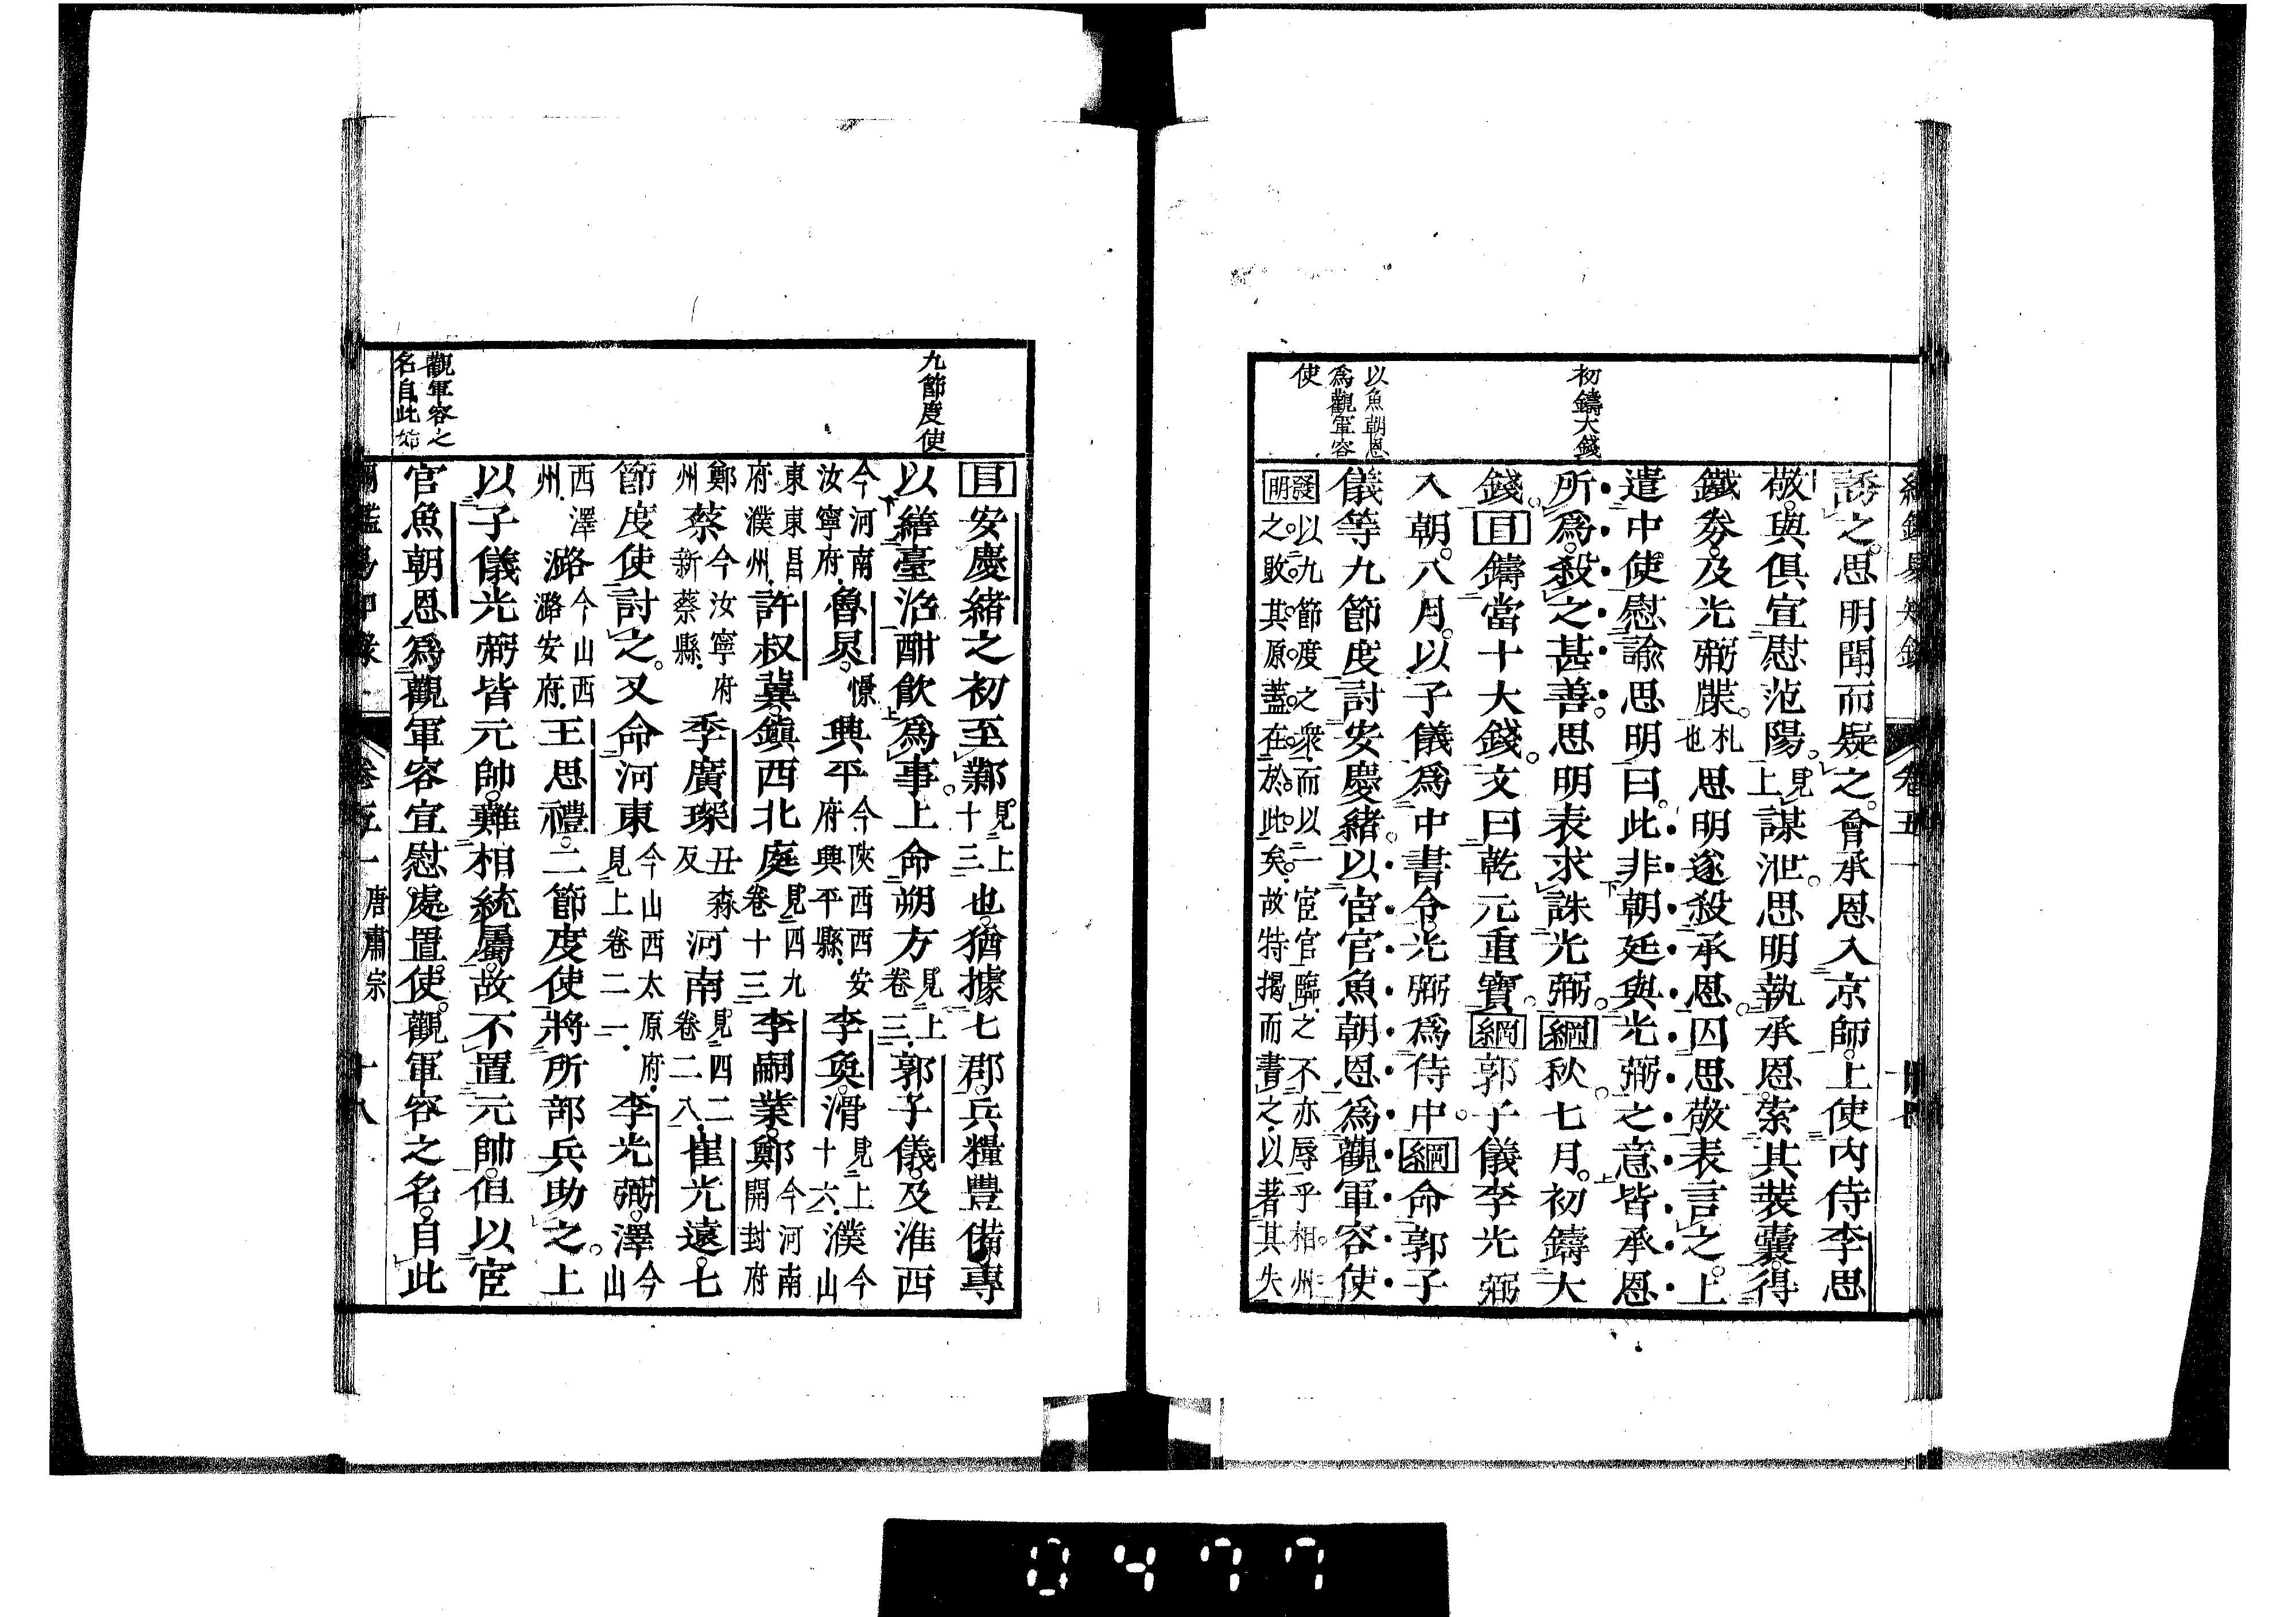 初鑄大錢
以魚朝恩
爲觀軍容
使
誘之思明聞而疑之會承恩入京師上使內侍李思
敬與俱宣慰范陽見上謀泄思明執承恩索其裝囊得
鐵劵及光弼牒札也思明遂殺承恩囚思敬表言之上
遣中使慰諭思明曰此非朝廷與光弼之意皆承恩
所爲殺之甚善思明表求誅光弼綱秋七月初鑄大
錢目鑄當十大錢文曰乾元重寶綱郭子儀李光弼
入朝八月以子儀爲中書令光弼爲侍中綱命郭子
儀等九節度討安慶緒以宦官魚朝恩爲觀軍容使
發明以九節度之衆而以一宦官臨之不亦辱乎相州
之敗其原蓋在於此矣故特揭而書之以著其失
九節度使
觀軍容之
名自此始
目安慶緒之初至鄴見上十三也猶據七郡兵糧豐備專
以繕臺沼酣飲爲事上命朔方見上卷三郭子儀及淮西
今河南汝寧府魯炅憬興平今陝西西安府興平縣李奐滑見上十六濮今山
東東昌府濮州許叔冀鎭西北庭見四九卷十三李嗣業鄭今河南開封府
鄭州蔡今汝寧府新蔡縣季廣琛丑森反河南見四二卷二八崔光遠七
節度使討之又命河東今山西太原府見上卷二一李光弼澤今山
西澤州潞今山西潞安府王思禮二節度使將所部兵助之上
以子儀光弼皆元帥難相統屬故不置元帥但以宦
官魚朝恩爲觀軍容宣慰處置使觀軍容之名自此
唐肅宗
十八
0477